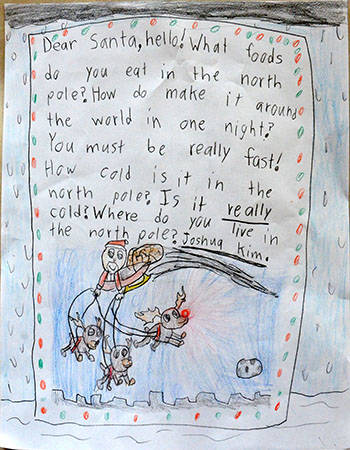 Dear Santa, hello! What foods
do you eat in the north
pole? How do make it around
the world in one night?
You must be really fast!
How cold is it in the
north pole? Is it really
cold? Where do you live in
the north pole? Joshua Kim.